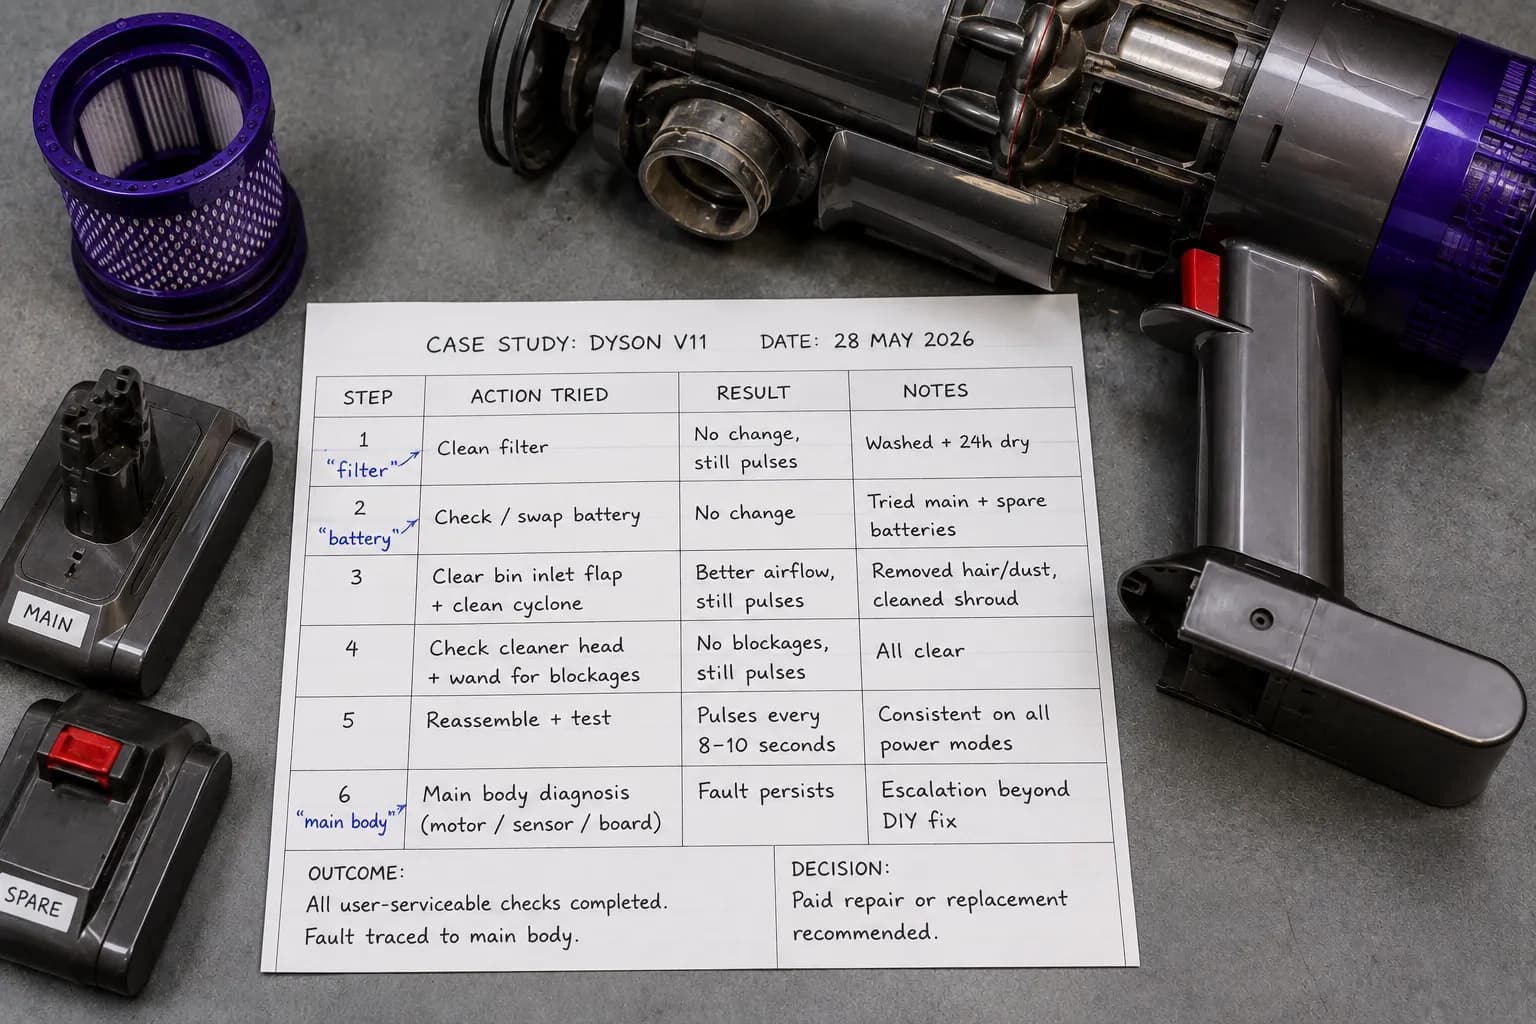 CASE STUDY: DYSON V11 DATE: 28 MAY 2026
STEP ACTION TRIED RESULT NOTES
1
"filter"
Clean filter
No change,
still pulses
Washed + 24h dry
2
"battery"
Check / swap battery
No change
Tried main + spare
batteries
3
Clear bin inlet flap
+ clean cyclone
Better airflow,
still pulses
Removed hair/dust,
cleaned shroud
4
Check cleaner head
+ wand for blockages
No blockages,
still pulses
All clear
5
Reassemble + test
Pulses every
8–10 seconds
Consistent on all
power modes
6
"main body"
Main body diagnosis
(motor / sensor / board)
Fault persists
Escalation beyond
DIY fix
OUTCOME:
All user-serviceable checks completed.
Fault traced to main body.
DECISION:
Paid repair or replacement
recommended.
MAIN
SPARE